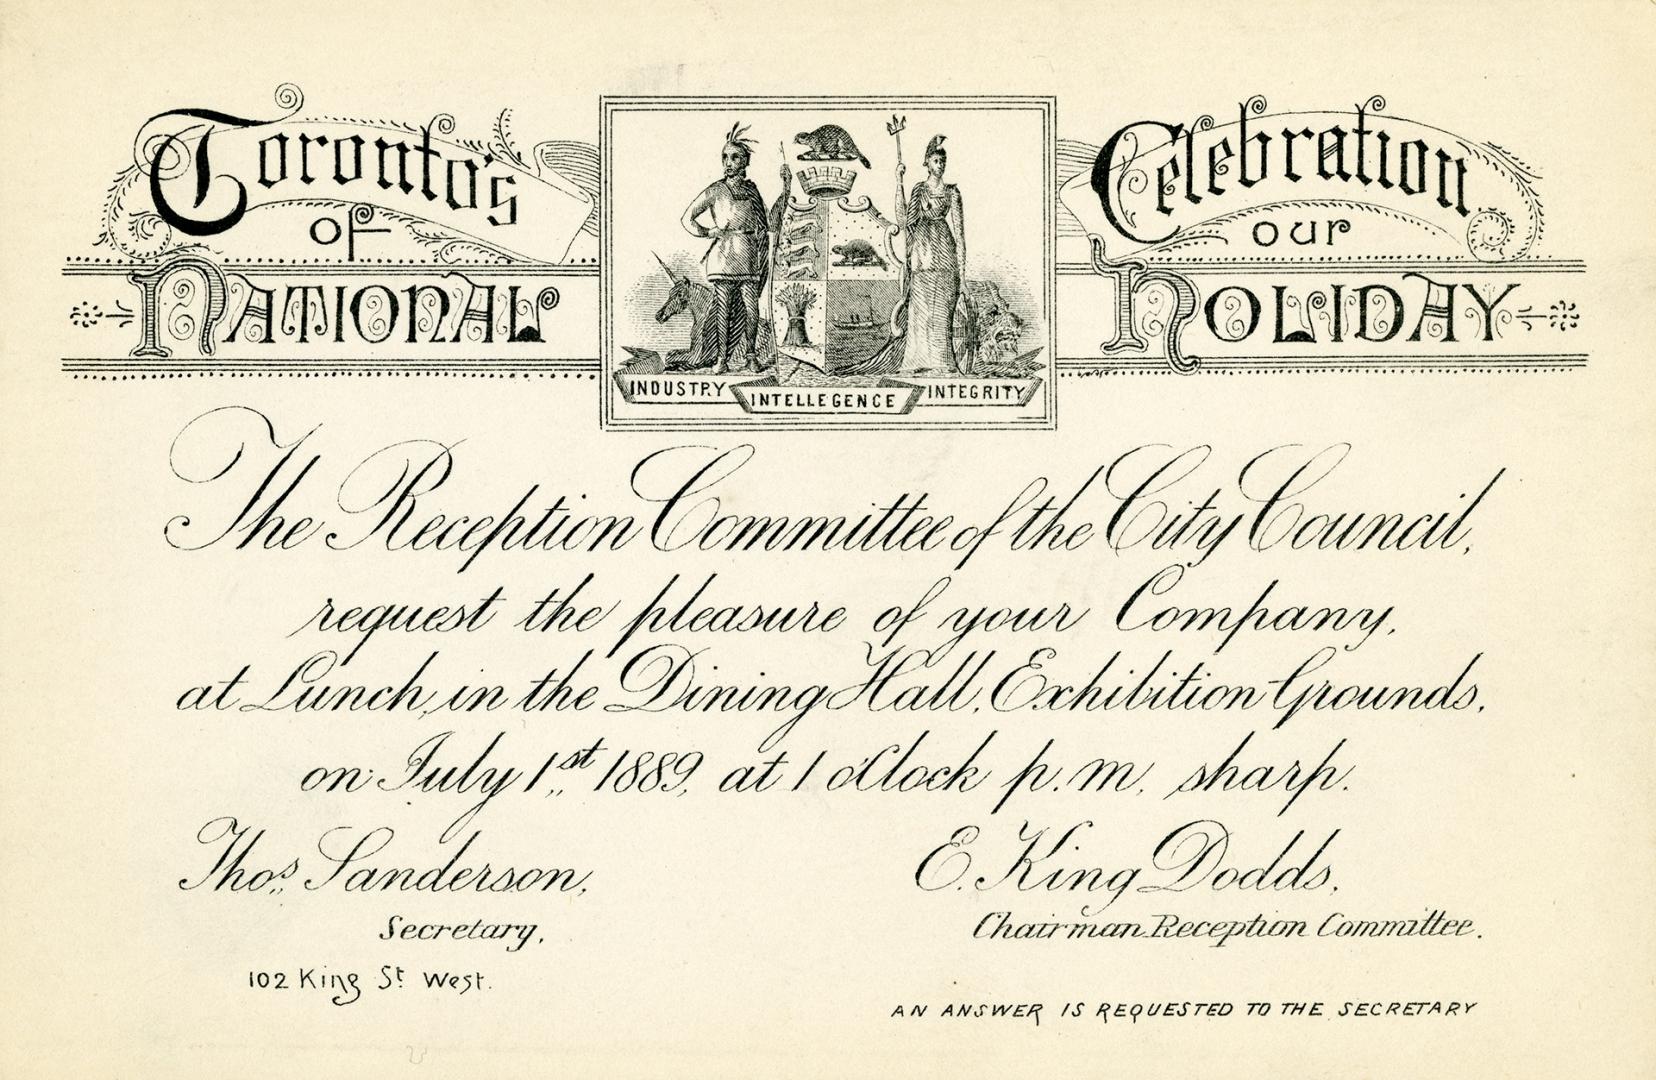 Toronto's Celebration
of our
National Holiday
INDUSTRY INTELLEGENCE INTEGRITY
The Reception Committee of the City Council,
request the pleasure of your Company,
at Lunch, in the Dining Hall, Exhibition Grounds,
on July 1st 1889, at 1 o'Clock p.m. sharp.
Thos. Sanderson,
Secretary,
102 King St West.
E. King Dodds,
Chairman Reception Committee.
AN ANSWER IS REQUESTED TO THE SECRETARY